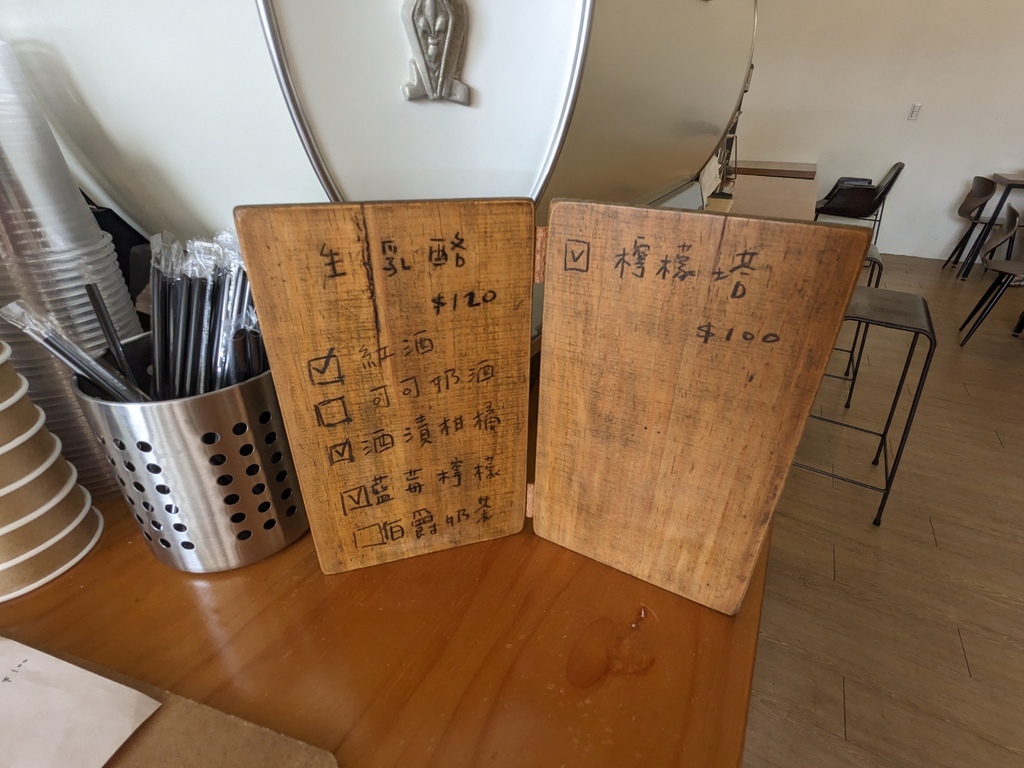 生乳酪
$120
☑ 紅酒
☐ 可可奶酒
☑ 酒漬柑橘
☑ 藍莓檸檬
☐ 伯爵奶茶
☑ 檸檬塔
$100